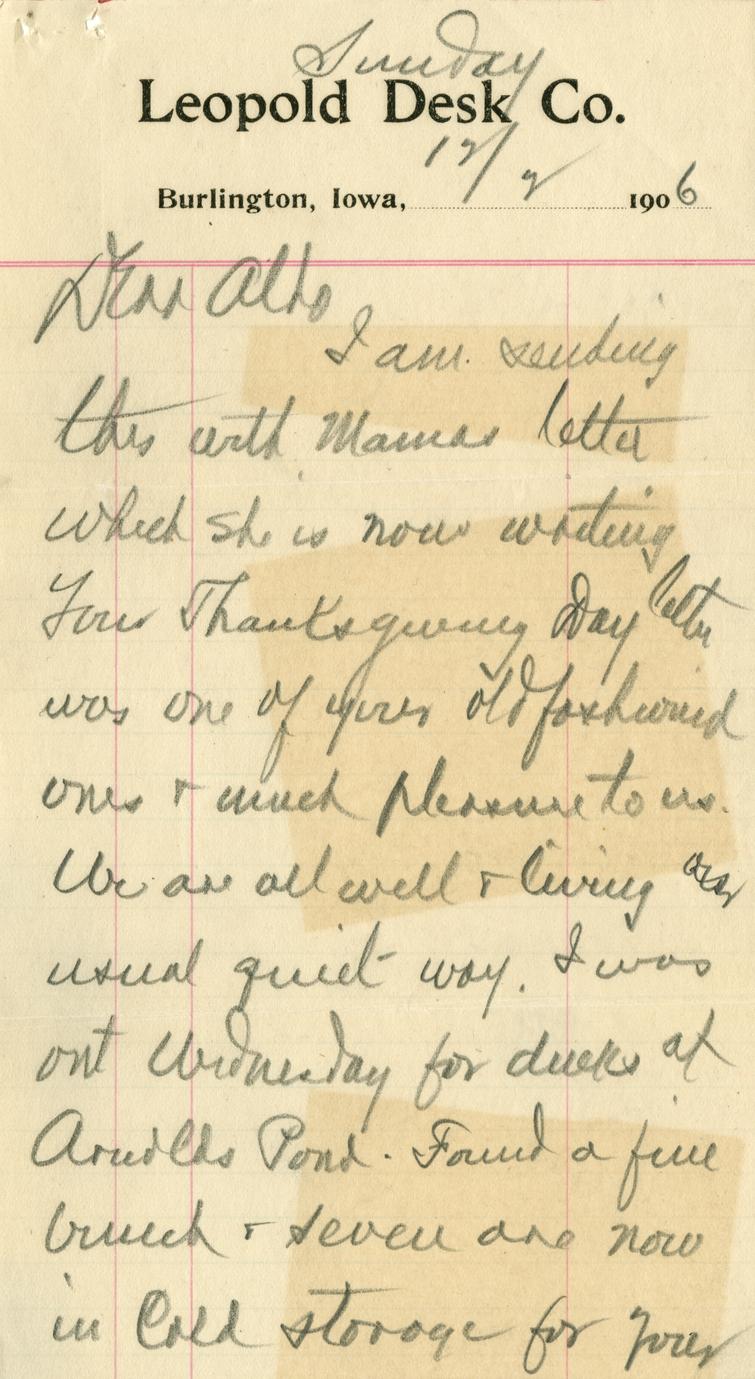 Sunday
Leopold Desk Co.
12/2
Burlington, Iowa, 1906
Dear Aldo
I am sending
this with Mamas letter
which she is now writing
Your Thanksgiving Day letter
was one of your old fashioned
ones & much pleasure to us.
We are all well & living our
usual quiet way. I was
out Wednesday for ducks at
Arnolds Pond. Found a fine
bunch & seven are now
in Cold storage for your